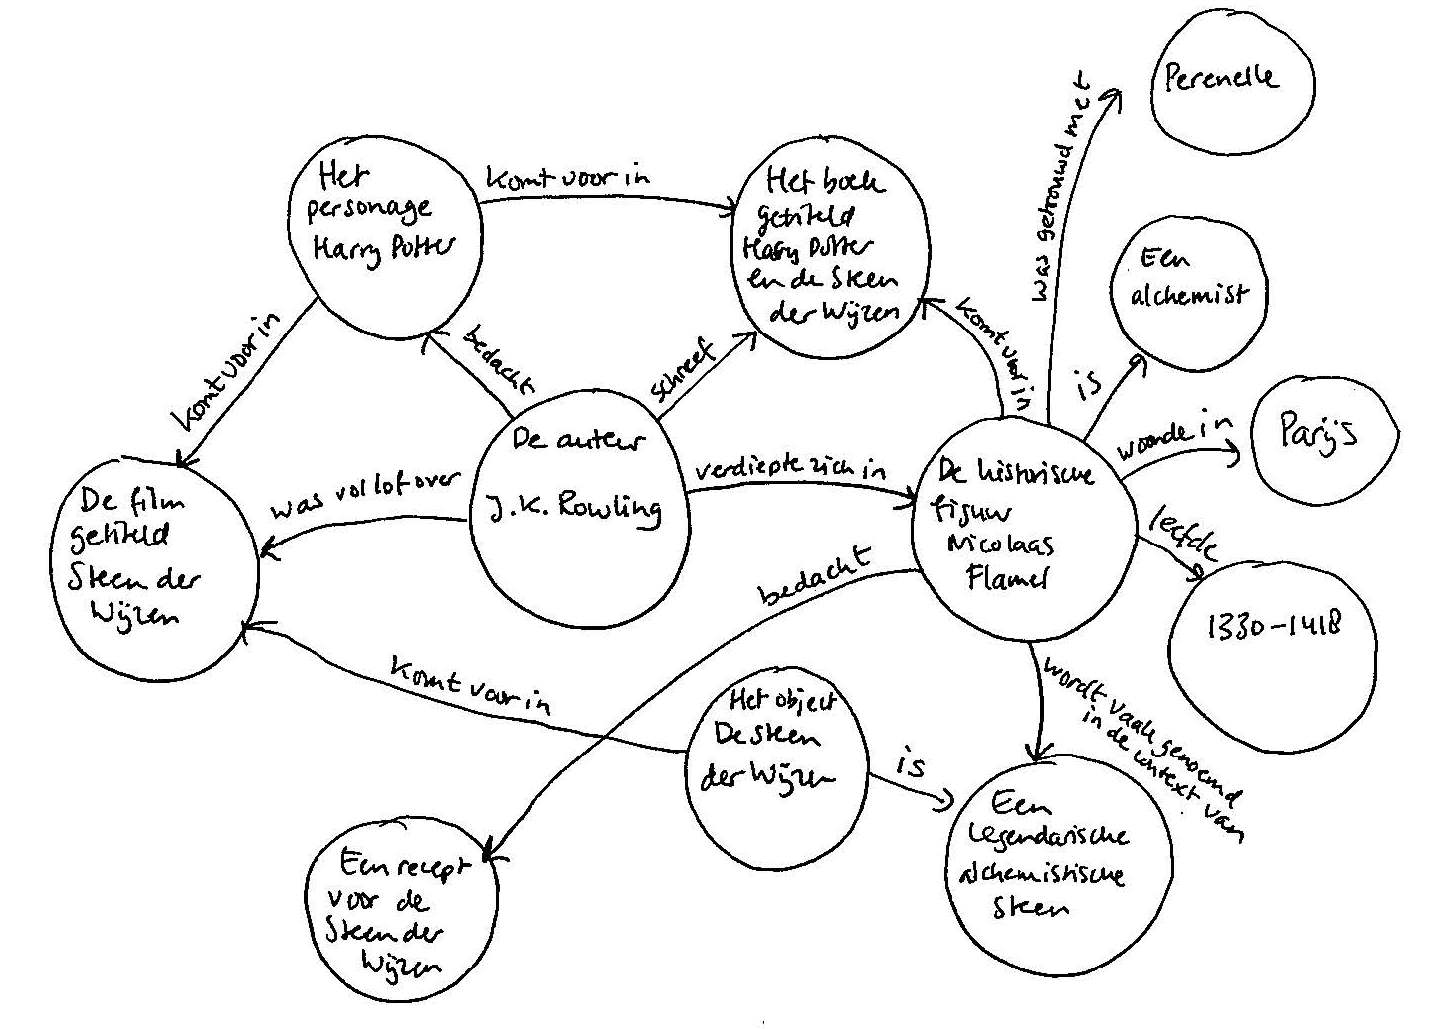 Perenelle
was getrouwd met
Het
personage
Harry Potter
komt voor in
Het boek
getiteld
Harry Potter
en de Steen
der Wijzen
Een
alchemist
is
komt voor in
komt voor in
bedacht
schreef
woonde in
Parijs
De auteur
J.K. Rowling
verdiepte zich in
De historische
figuur
Nicolaas
Flamel
was vol lof over
De film
getiteld
Steen der
Wijzen
leefde
1330-1418
bedacht
komt voor in
Het object
De steen
der Wijzen
is
wordt vaak genoemd
in de context van
Een
legendarische
alchemistische
Steen
Een recept
voor de
Steen der
Wijzen